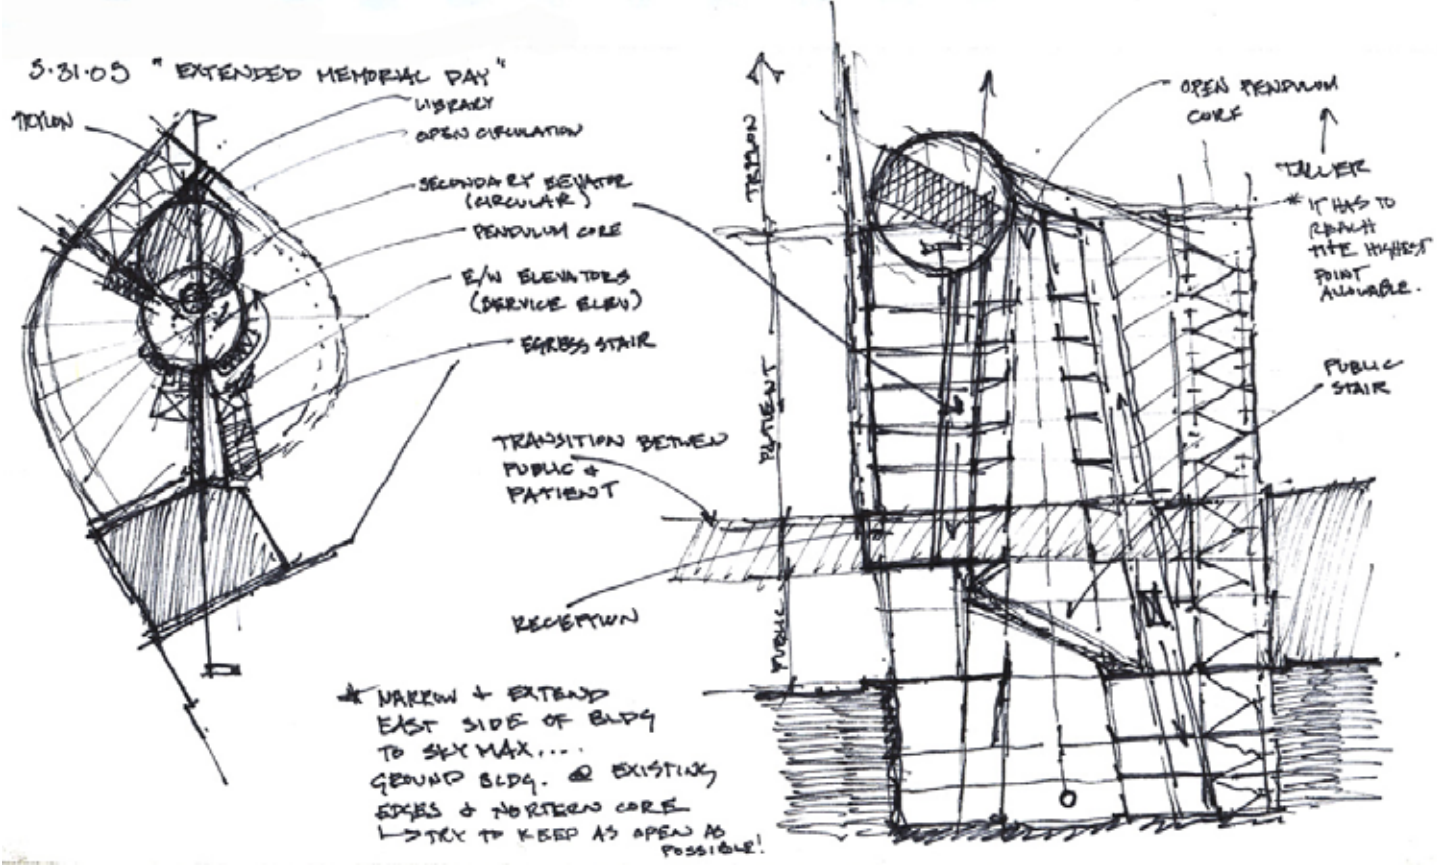 5.31.05 "EXTENDED MEMORIAL DAY"
TRYLON
LIBRARY
OPEN CIRCULATION
SECONDARY ELEVATOR
(CIRCULAR)
PENDULUM CORE
E/W ELEVATORS
(SERVICE ELEV)
EGRESS STAIR
TRANSITION BETWEEN
PUBLIC +
PATIENT
RECEPTION
* NARROW + EXTEND
EAST SIDE OF BLDG
TO SKY MAX....
GROUND BLDG. @ EXISTING
EDGES + NORTERN CORE
↳ TRY TO KEEP AS OPEN AS
POSSIBLE!
TRYLON
PATIENT
PUBLIC
OPEN PENDULUM
CORE
TALLER
* IT HAS TO
REACH
THE HIGHEST
POINT
ALLOWABLE.
PUBLIC
STAIR